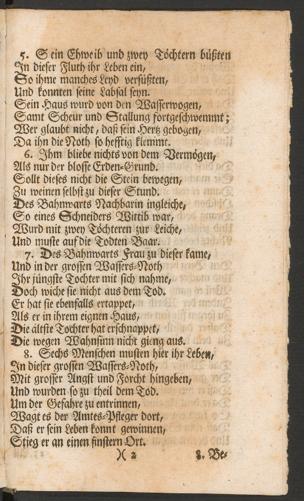 5. Sein Ehweib und zwey Töchtern büßten
In dieser Fluth ihr Leben ein,
So ihme manches Leyd versüßten,
Und konnten seine Labsal seyn.
Sein Haus wurd von den Wasserwogen,
Samt Scheur und Stallung fortgeschwemmt;
Wer glaubt nicht, daß sein Hertz gebogen,
Da ihn die Noth so hefftig klemmt.
6. Ihm bliebe nichts von dem Vermögen,
Als nur der blosse Erden-Grund.
Sollt dieses nicht die Stein bewegen,
Zu weinen selbst zu dieser Stund.
Des Bahnwarts Nachbarin ingleiche,
So eines Schneiders Wittib war,
Wurd mit zwey Töchteren zur Leiche,
Und muste auf die Todten Baar.
7. Des Bahnwarts Frau zu dieser kame,
Und in der grossen Wassers-Noth
Ihr jüngste Tochter mit sich nahme,
Doch wiche sie nicht aus dem Tod.
Er hat sie ebenfalls ertappet,
Als er in ihrem eignen Haus,
Die ältste Tochter hat erschnappet,
Die wegen Wahnsinn nicht gieng aus.
8. Sechs Menschen musten hier ihr Leben,
In dieser grossen Wassers-Noth,
Mit grosser Angst und Forcht hingeben,
Und wurden so zu theil dem Tod.
Um der Gefahre zu entrinnen,
Wagt es der Amtes-Pfleger dort,
Daß er sein Leben konnt gewinnen,
Stieg er an einen finstern Ort.
)( 2 8. Be-